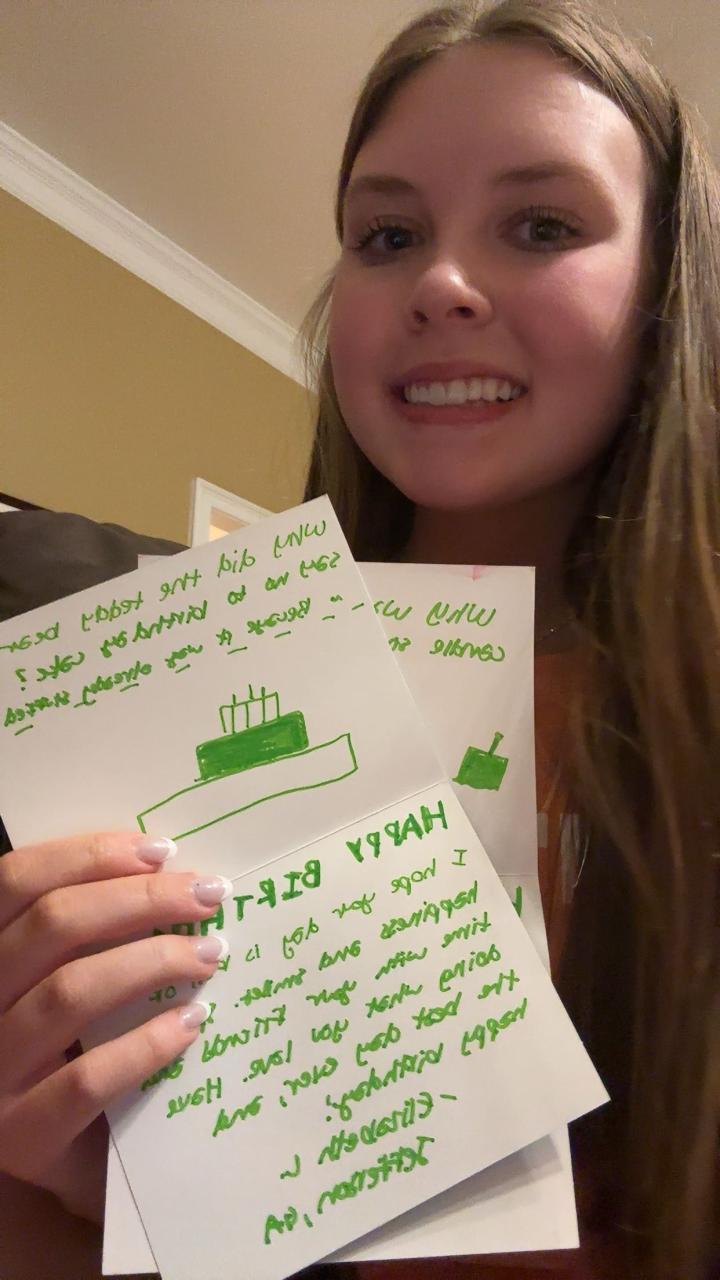 Why did the teddy bear
say no to birthday cake?
-- " Because it was already stuffed
HAPPY BIRTHDA
I hope your day is of
happiness and smiles.
time with your friends and
doing what you love. Have
the best day ever, and
happy birthday!
- Elizabeth L
Jefferson, GA
Why
candle